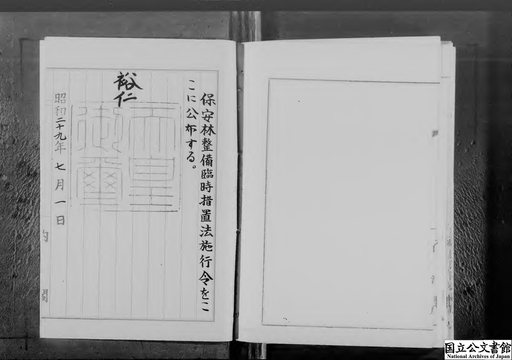 保安林整備臨時措置法施行令をこ
こに公布する。
裕仁
天皇
御璽
昭和二十九年七月一日
国立公文書館
National Archives of Japan